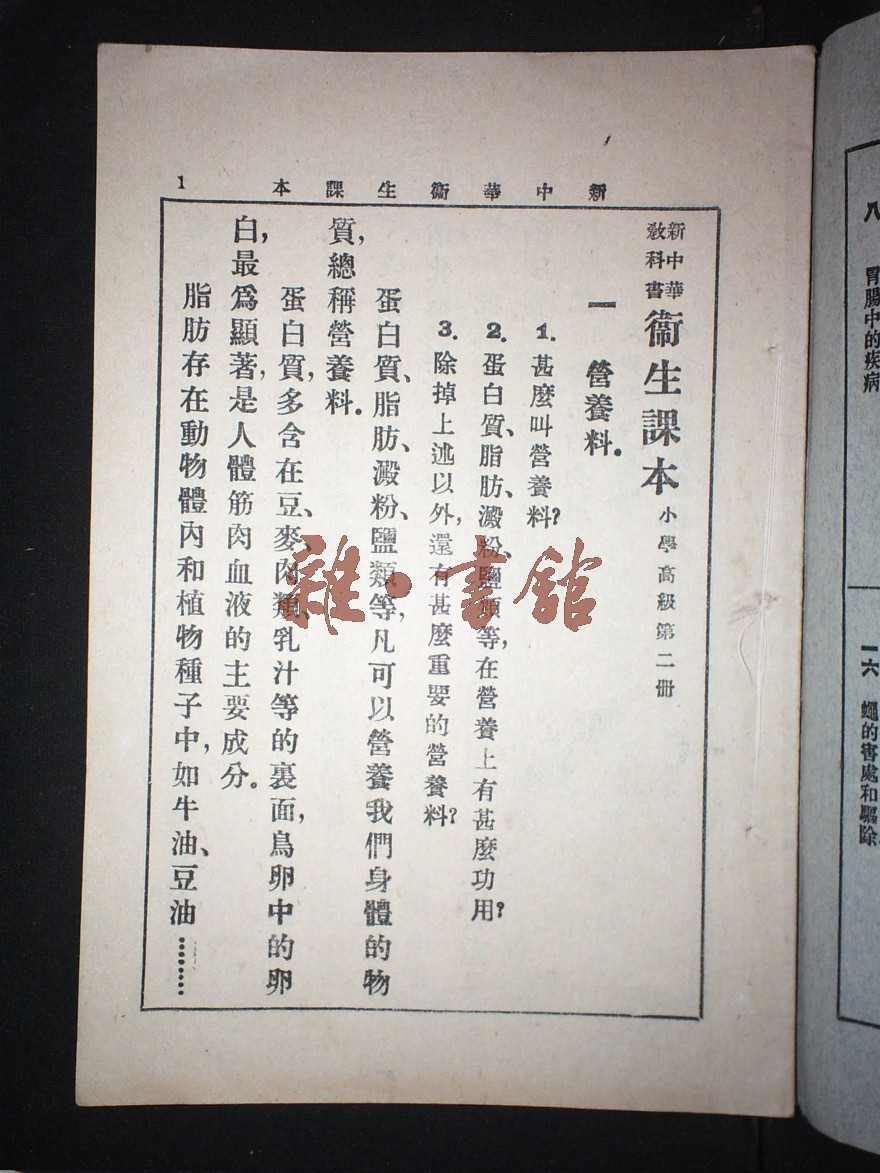 新中華衞生課本 1
新中華
教科書
衞生課本 小學高級第二册
一 營養料。
1. 甚麼叫營養料?
2. 蛋白質、脂肪、澱粉、鹽類等,在營養上有甚麼功用?
3. 除掉上述以外,還有甚麼重要的營養料?
蛋白質、脂肪、澱粉、鹽類等,凡可以營養我們身體的物
質,總稱營養料。
蛋白質,多含在豆、麥、肉類、乳汁等的裏面,鳥卵中的卵
白,最爲顯著,是人體筋肉血液的主要成分。
脂肪存在動物體內和植物種子中,如牛油、豆油………
雜·書館
八 胃腸中的疾病
一六 蠅的害處和驅除